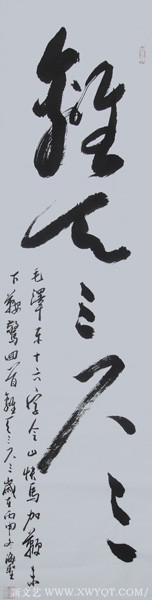 離天三尺三
毛澤東十六字令山快馬加鞭未
下鞍驚回首離天三尺三歲在丙申
新文艺 www.XWYQT.com